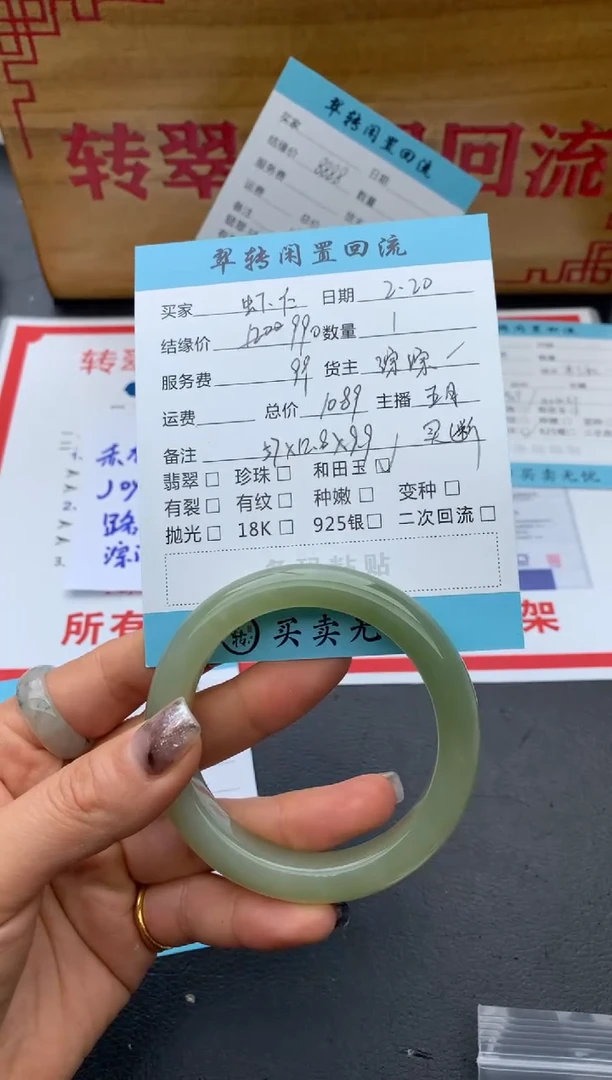 翠转闲置回流
买家
日期
结缘价
8888
服务费
数量
运费
总价
备注
转翠
回流
翠转闲置回流
买家 虾仁 日期 2.20
结缘价 1200 990 数量 1
服务费 99 货主 琮琮
运费 总价 1089 主播 五月
备注 57x12.8x9.9 买断
翡翠□ 珍珠□ 和田玉☑
有裂□ 有纹□ 种嫩□ 变种□
抛光□ 18K□ 925银□ 二次回流□
条码粘贴
转 买卖无
转翠
所有
架
买卖无忧